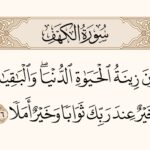 سُورَةُ الكَهْفِ
نَ زِينَةُ الْحَيَوٰةِ الدُّنْيَا ۖ وَالْبَٰقِيَٰ
خَيْرٌ عِندَ رَبِّكَ ثَوَابًا وَخَيْرٌ أَمَلًا